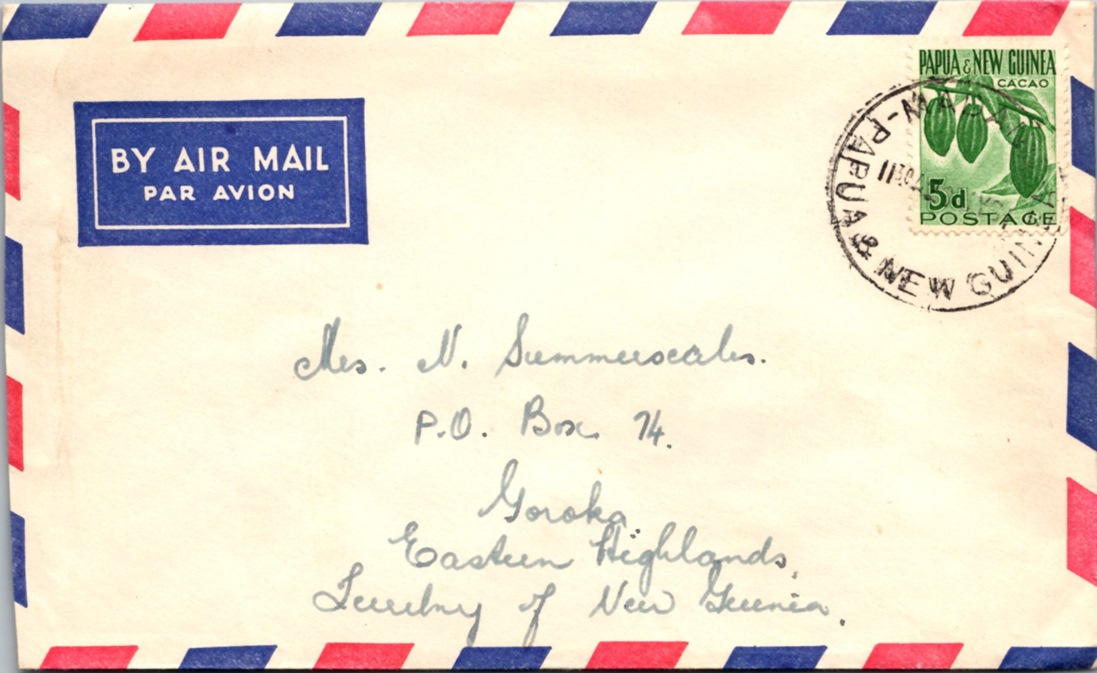 BY AIR MAIL
PAR AVION
PAPUA & NEW GUINEA
CACAO
5d
POSTAGE
MADANG - PAPUA & NEW GUINEA
Mrs. N. Summerscales.
P.O. Box 74.
Goroka
Eastern Highlands,
Territory of New Guinea.